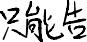 只能告